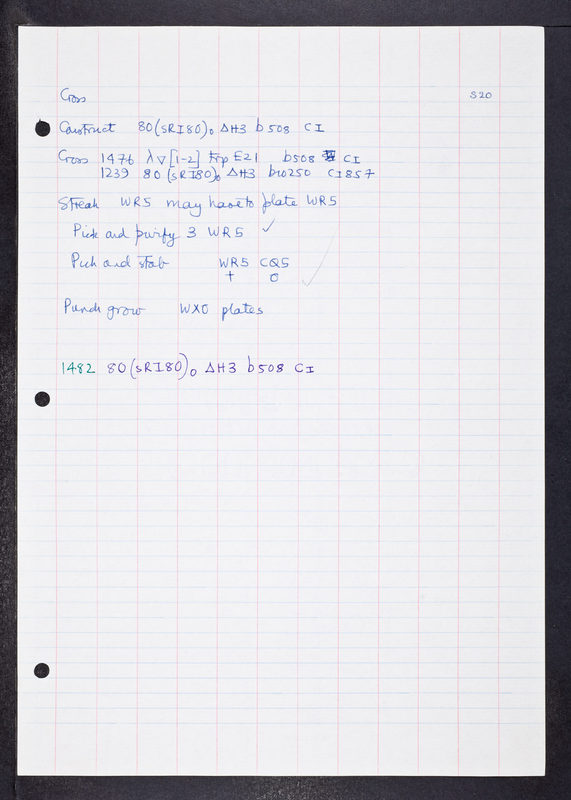 Cross S20
Construct 80(sRI80)₀ ΔH3 b508 CI
Cross 1476 λ∇[1-2] trp E21 b508 CI
1239 80(sRI80)₀ ΔH3 bio250 CI857
Streak WR5 may have to plate WR5
Pick and purify 3 WR5 ✓
Pick and stab WR5 CQ5
+ O ✓
Punch grow WXO plates
1482 80(sRI80)₀ ΔH3 b508 CI